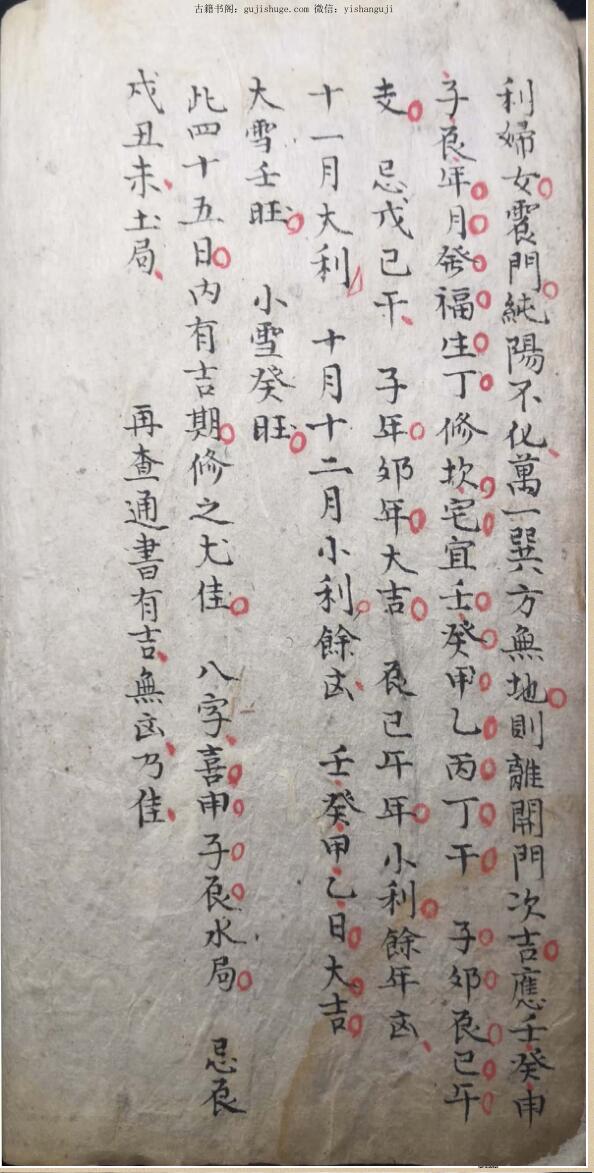 古籍书阁：gujishuge.com 微信：yishanguji
利婦女震門純陽不化萬一巽方無地則離開門次吉應壬癸申
子辰年月發福生丁修坎宅宜壬癸甲乙丙丁干　子卯辰巳午
支　忌戊己干　子年卯年大吉　辰巳午年小利餘年凶
十一月大利　十月十二月小利餘凶　壬癸甲乙日大吉
大雪壬旺　小雪癸旺
此四十五日內有吉期修之尤佳　八字喜申子辰水局　忌辰
戌丑未土局　再查通書有吉無凶乃佳